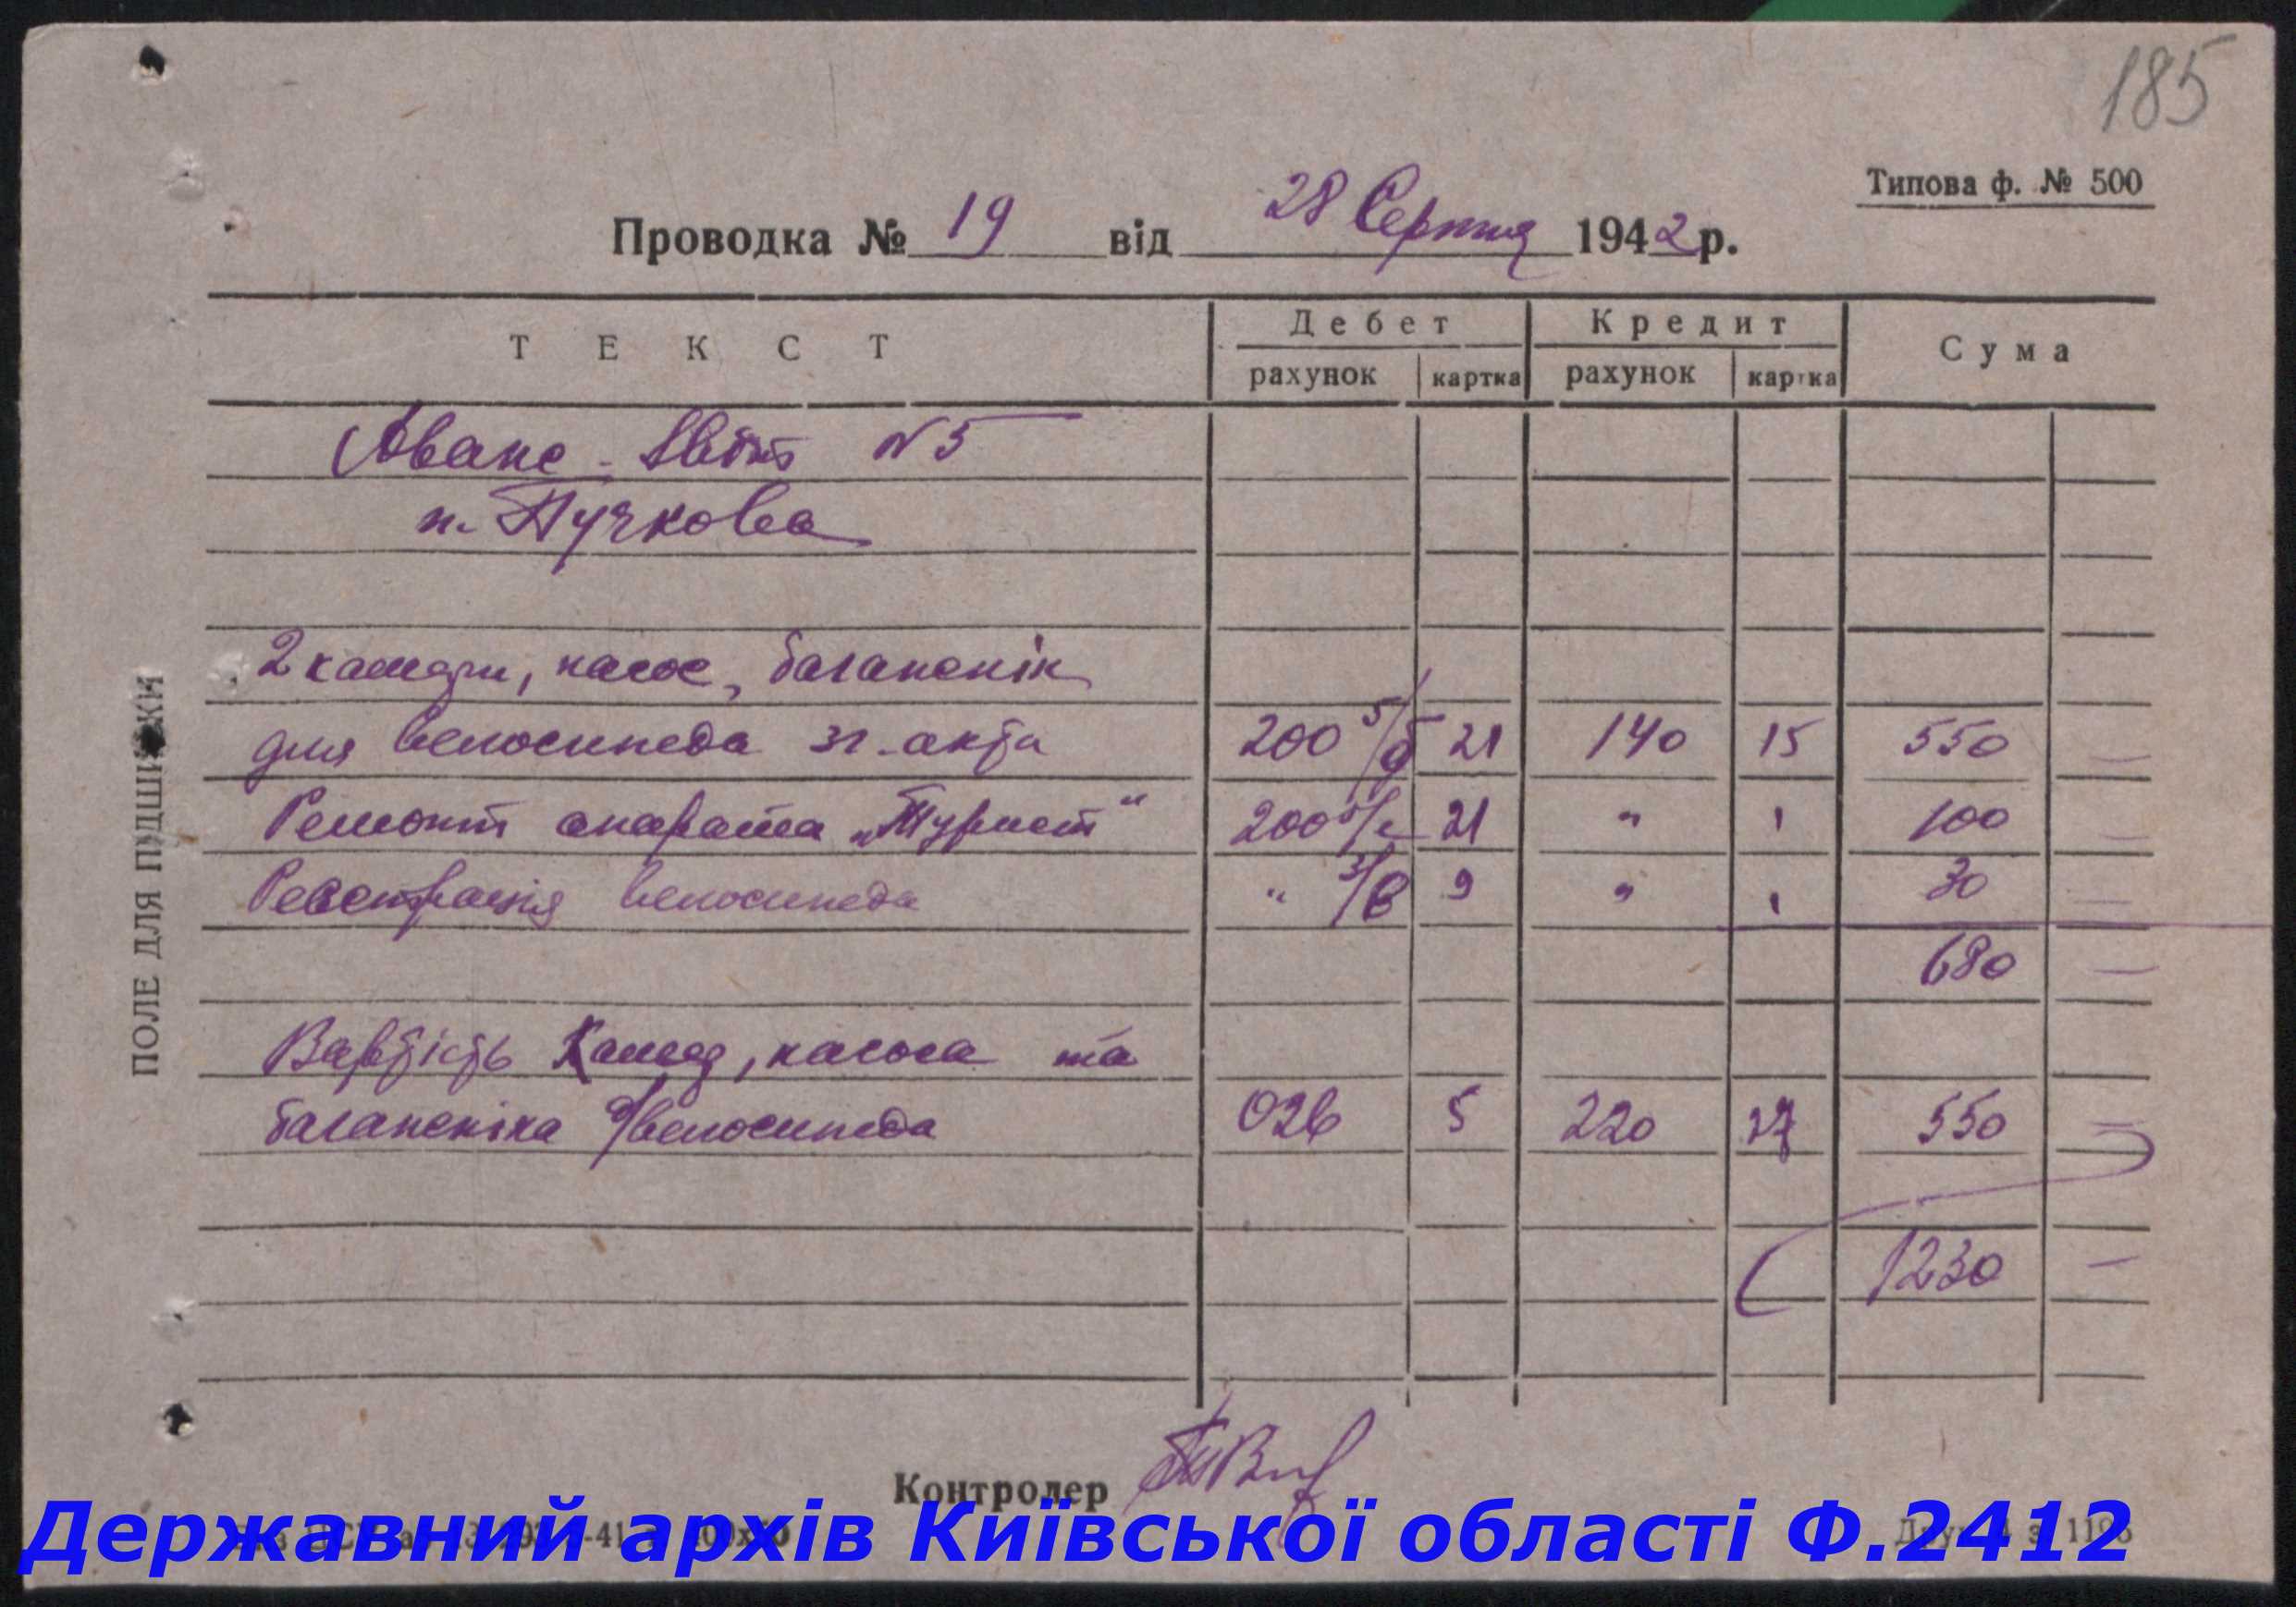 185
Типова ф. № 500
Проводка № 19 від 28 Серпня 1942 р.
ТЕКСТ Дебет Кредит Сума
рахунок картка рахунок картка
Аванс. Звіт N 5
п. Пучкова
2 камери, насос, багажнік
для велосипеда зг. акта 200 5/д 21 140 15 550 —
Ремонт апарата „Турист“ 200 21 " " 100 —
Реєстрація велосипеда " 3/в 9 " " 30 —
680 —
Вартість Камер, насоса та
багажніка д/велосипеда 026 5 220 27 550 —
1230 —
ПОЛЕ ДЛЯ ПІДШИВКИ
Контролер
Державний архів Київської області Ф.2412